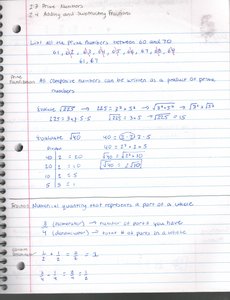 2.7 Prime Numbers
2.4 Adding and Subtracting Fractions
List all the Prime Numbers between 60 and 70
61, 62, 63, 64, 65, 66, 67, 68, 69
61, 67
Prime
Factorization
All composite numbers can be written as a product of prime
numbers
Evaluate √225
225 = 3·3·5·5
√225 = 3·5
√225 = 15
Evaluate √40
40 = 2·2·2·5
Prime
40 2 = 20
20 2 = 10
10 2 = 5
5 5 = 1
Fractions
Numerical quantity that represents a part of a whole
3 (numerator) → number of parts you have
4 (denominator) → number of parts in a whole
Common
Denominator
1/2 + 1/2 = 2/2 = 1